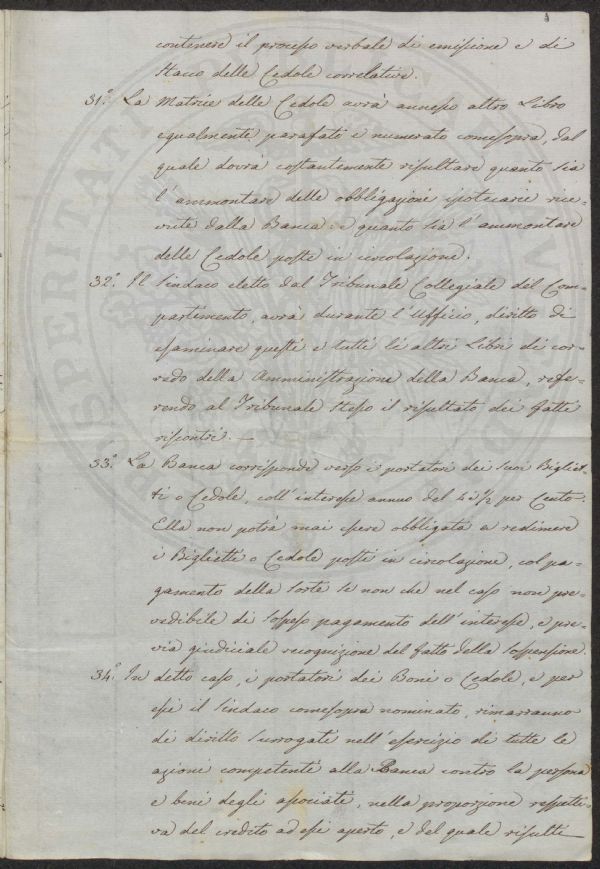 contenere il processo verbale di emissione e di
stacco delle Cedole correlative.
31.° La Matrice delle Cedole avrà annesso altro Libro
egualmente parafato e numerato comesopra, dal
quale dovrà costantemente risultare quanto sia
l'ammontare delle obbligazioni ipotecarie rice-
vute dalla Banca: e quanto sia l'ammontare
delle Cedole poste in circolazione.
32.° Il Sindaco eletto dal Tribunale Collegiale del Com-
partimento, avrà durante l'Ufficio, diritto di
esaminare questi e tutti li altri Libri di cor-
redo della Amministrazione della Banca, refe-
rendo al Tribunale stesso il risultato dei fatti
riscontri. —
33.° La Banca corrisponde verso i portatori dei suoi Bigliet-
ti o Cedole, coll'interesse annuo del 4 i ½ per Cento.
Ella non potrà mai essere obbligata a redimere
i Biglietti o Cedole posti in circolazione, col pa-
gamento della sorte se non che nel caso non pre-
vedibile di sospeso pagamento dell'interesse, e pre-
via giudiciale recognizione del fatto della sospensione.
34.° In detto caso, i portatori dei Boni o Cedole, e per
essi il Sindaco comesopra nominato, rimarranno
di diritto surrogati nell'esercizio di tutte le
azioni competenti alla Banca contro la persona
e beni degli associati, nella proporzione respetti-
va del credito ad essi aperto, e del quale risulti